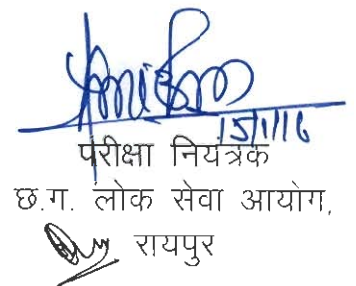 15/1/16
परीक्षा नियंत्रक
छ.ग. लोक सेवा आयोग,
रायपुर